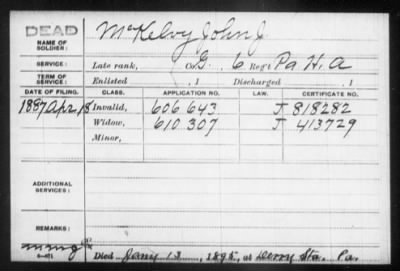 DEAD
NAME OF SOLDIER: McKelvy John J
SERVICE: Late rank, Co. G. 6 Reg't Pa H. A
TERM OF SERVICE: Enlisted , 1 Discharged , 1
DATE OF FILING. CLASS. APPLICATION NO. LAW. CERTIFICATE NO.
1887 Apr. 18 Invalid, 606 643 J 818282
Widow, 610 307 J 413729
Minor,
ADDITIONAL SERVICES:
REMARKS:
Died Jany 13, 1895, at Derry Sta. Pa.